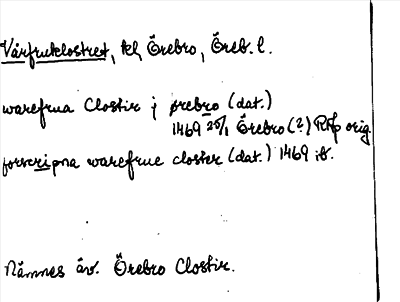 Vårfruklostret, kl, Örebro, Öreb. l.
warefrua Closter j ørebro (dat.)
1469 25/1 Örebro (?) RAp orig.
forscripna warefrue closter (dat.) 1469 ib.
Nämnes äv. Örebro Closter.